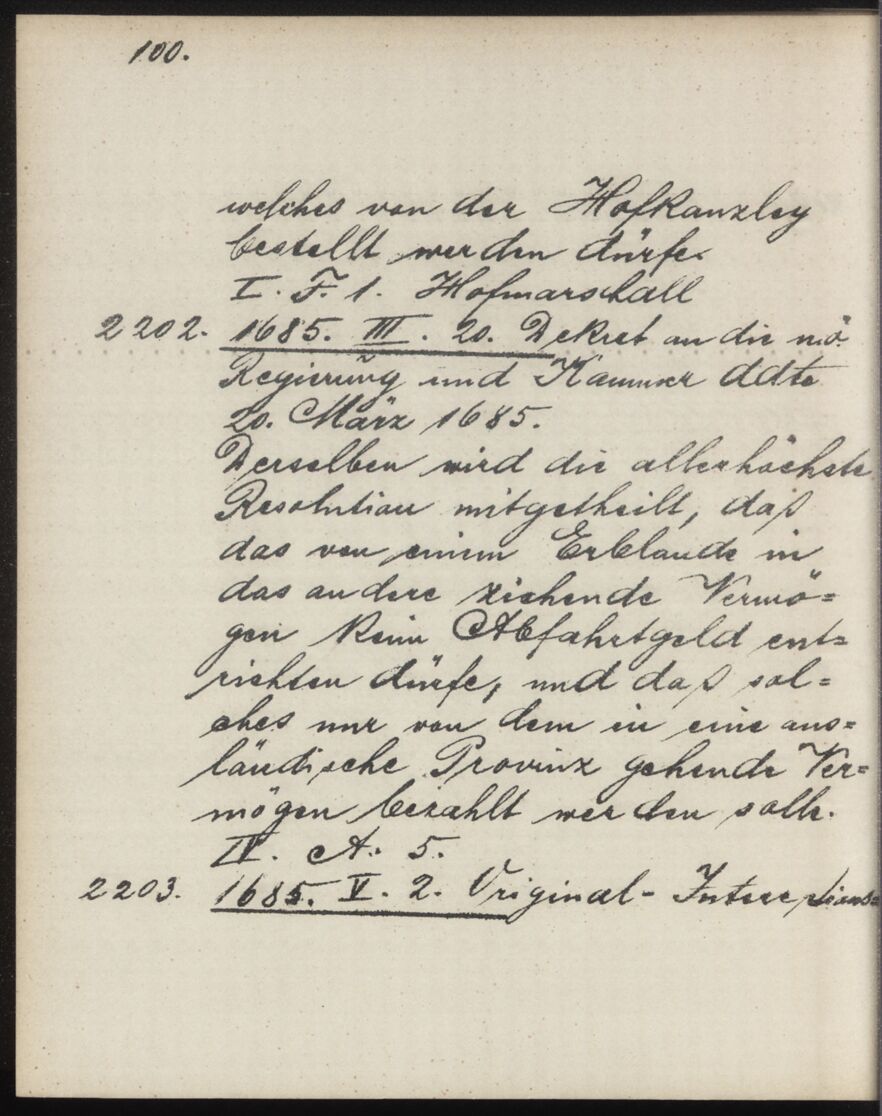 100.
welches von der Hofkanzley
bestellt werden dürfe.
I. F. 1. Hofmarschall
2202. 1685. III. 20. Dekret an die nö.
Regierung und Kammer ddto
20. März 1685.
Derselben wird die allerhöchste
Resolution mitgetheilt, daß
das von einem Erblande in
das andere ziehende Vermö=
gen kein Abfahrtgeld ent=
richten dürfe, und daß sol=
ches nur von dem in eine aus=
ländische Provinz gehende Ver=
mögen bezahlt werden solle.
IV. A. 5.
2203. 1685. V. 2. Original-